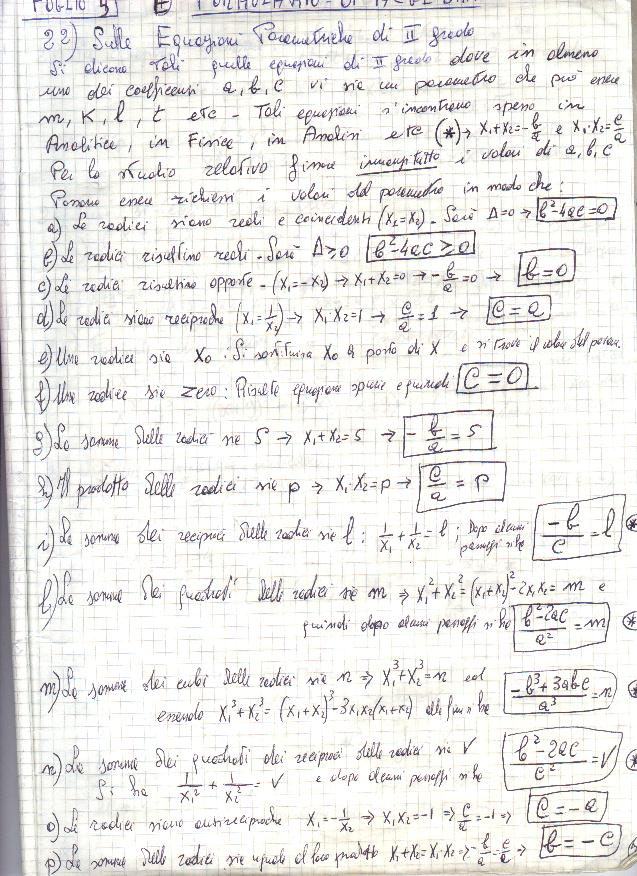 FOGLIO 5 E FORMULARIO DI ALGEBRA
22) Sulle Equazioni Parametriche di II grado
Si dicono Tali quelle equazioni di II grado dove in almeno
uno dei coefficienti a, b, c vi sia un parametro che può essere
m, K, l, t etc - Tali equazioni s'incontrano spesso in
Analitica, in Fisica, in Analisi etc (*)→ X₁+X₂=-b/a e X₁·X₂=c/a
Per lo studio relativo fissare innanzitutto i valori di a, b, c
Possono essere richiesti i valori del parametro in modo che:
a) Le radici siano reali e coincidenti (X₁=X₂) - Sarà Δ=0 → b²-4ac=0
b) Le radici risultino reali - Sarà Δ≥0 b²-4ac≥0
c) Le radici risultino opposte - (X₁=-X₂) → X₁+X₂=0 → -b/a=0 → b=0
d) Le radici siano reciproche (X₁=1/X₂) → X₁·X₂=1 → c/a=1 → C=a
e) Una radice sia X₀: Si sostituisce X₀ a posto di X e si trova il valore del param.
f) Una radice sia zero: Risulta equazione spuria e quindi C=0
g) La somma delle radici sia S → X₁+X₂=S → -b/a=S
h) Il prodotto delle radici sia p → X₁·X₂=p → c/a=p
i) La somma dei reciproci delle radici sia l: 1/X₁+1/X₂=l; Dopo alcuni passaggi si ha -b/c=l *
l) La somma dei quadrati delle radici sia m ⇒ X₁²+X₂²=(X₁+X₂)²-2X₁X₂=m e
quindi dopo alcuni passaggi si ha b²-2ac/a²=m *
m) La somma dei cubi delle radici sia n ⇒ X₁³+X₂³=n ed
essendo X₁³+X₂³=(X₁+X₂)³-3X₁X₂(X₁+X₂) alla fine si ha -b³+3abc/a³=n *
n) La somma dei quadrati dei reciproci delle radici sia V
Si ha 1/X₁²+1/X₂²=V e dopo alcuni passaggi si ha b²-2ac/c²=V *
o) Le radici siano antireciproche X₁=-1/X₂ ⇒ X₁X₂=-1 ⇒ c/a=-1 ⇒ C=-a
p) La somma delle radici sia uguale al loro prodotto X₁+X₂=X₁·X₂ ⇒ -b/a=c/a ⇒ b=-c